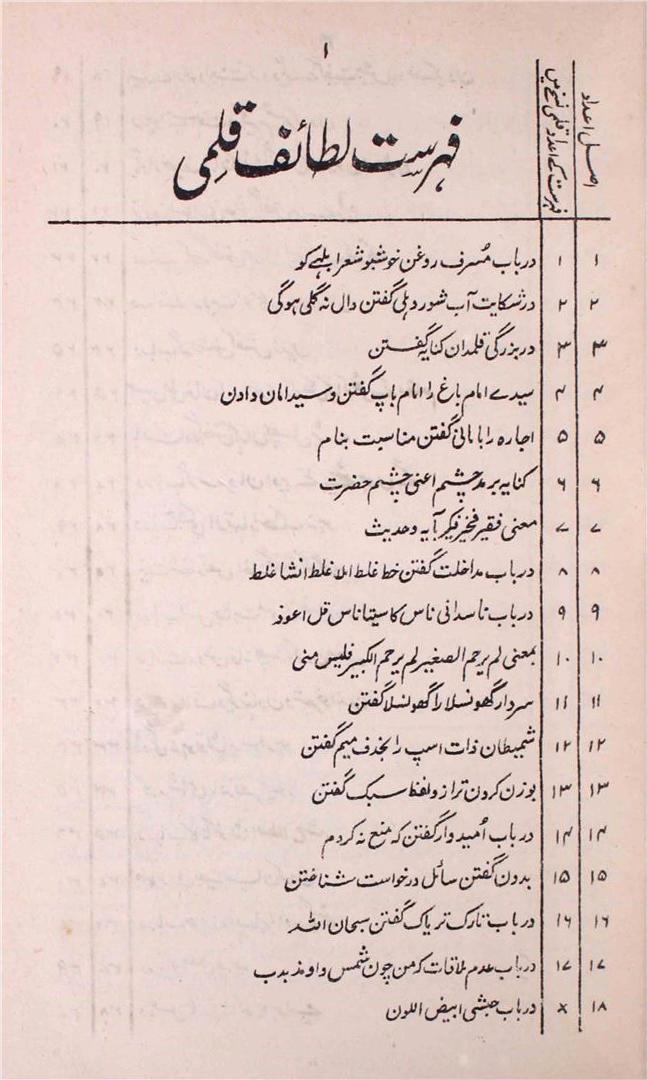 ۱
اصل اعداد
فہرست کے اعداد قلمی نسخے میں
فہرست لطائف قلمی
۱ ۱ در باب مُسرف روغن خوشبو شعرا بلہے کو
۲ ۲ در شکایت آب شور دہلی گفتن دال نہ گلی ہوگی
۳ ۳ در بزرگی قلمدان کنایہ گفتن
۴ ۴ سیدے امام باغ را امام باپ گفتن و سید امان دادن
۵ ۵ اجارہ را بابائی گفتن مناسبت بنام
۶ ۶ کنایہ بر مد چشم اعنی چشم حضرت
۷ ۷ معنی فقیر فخیر فکیر آیہ و حدیث
۸ ۸ در باب مداخلت گفتن خط غلط املا غلط انشا غلط
۹ ۹ در باب ناسدانی ناس کا ستیا ناس قل اعوذ
۱۰ ۱۰ بمعنی لم یرحم الصغیر لم یرحم الکبیر فلیس منی
۱۱ ۱۱ سردار گھونسلا را گھونسلا گفتن
۱۲ ۱۲ شمیطان ذات اسپ را بحذف میم گفتن
۱۳ ۱۳ بوزن کردن ترازو لفظ سبک گفتن
۱۴ ۱۴ در باب اُمیدوار گفتن کہ منع نہ کردم
۱۵ ۱۵ بدون گفتن سائل درخواست شناختن
۱۶ ۱۶ در باب تارک تریاک گفتن سبحان اللہ
۱۷ ۱۷ در باب عدم ملاقات کہ من چون شمس و او مذبذب
۱۸ × در باب حبشی ابیض اللون